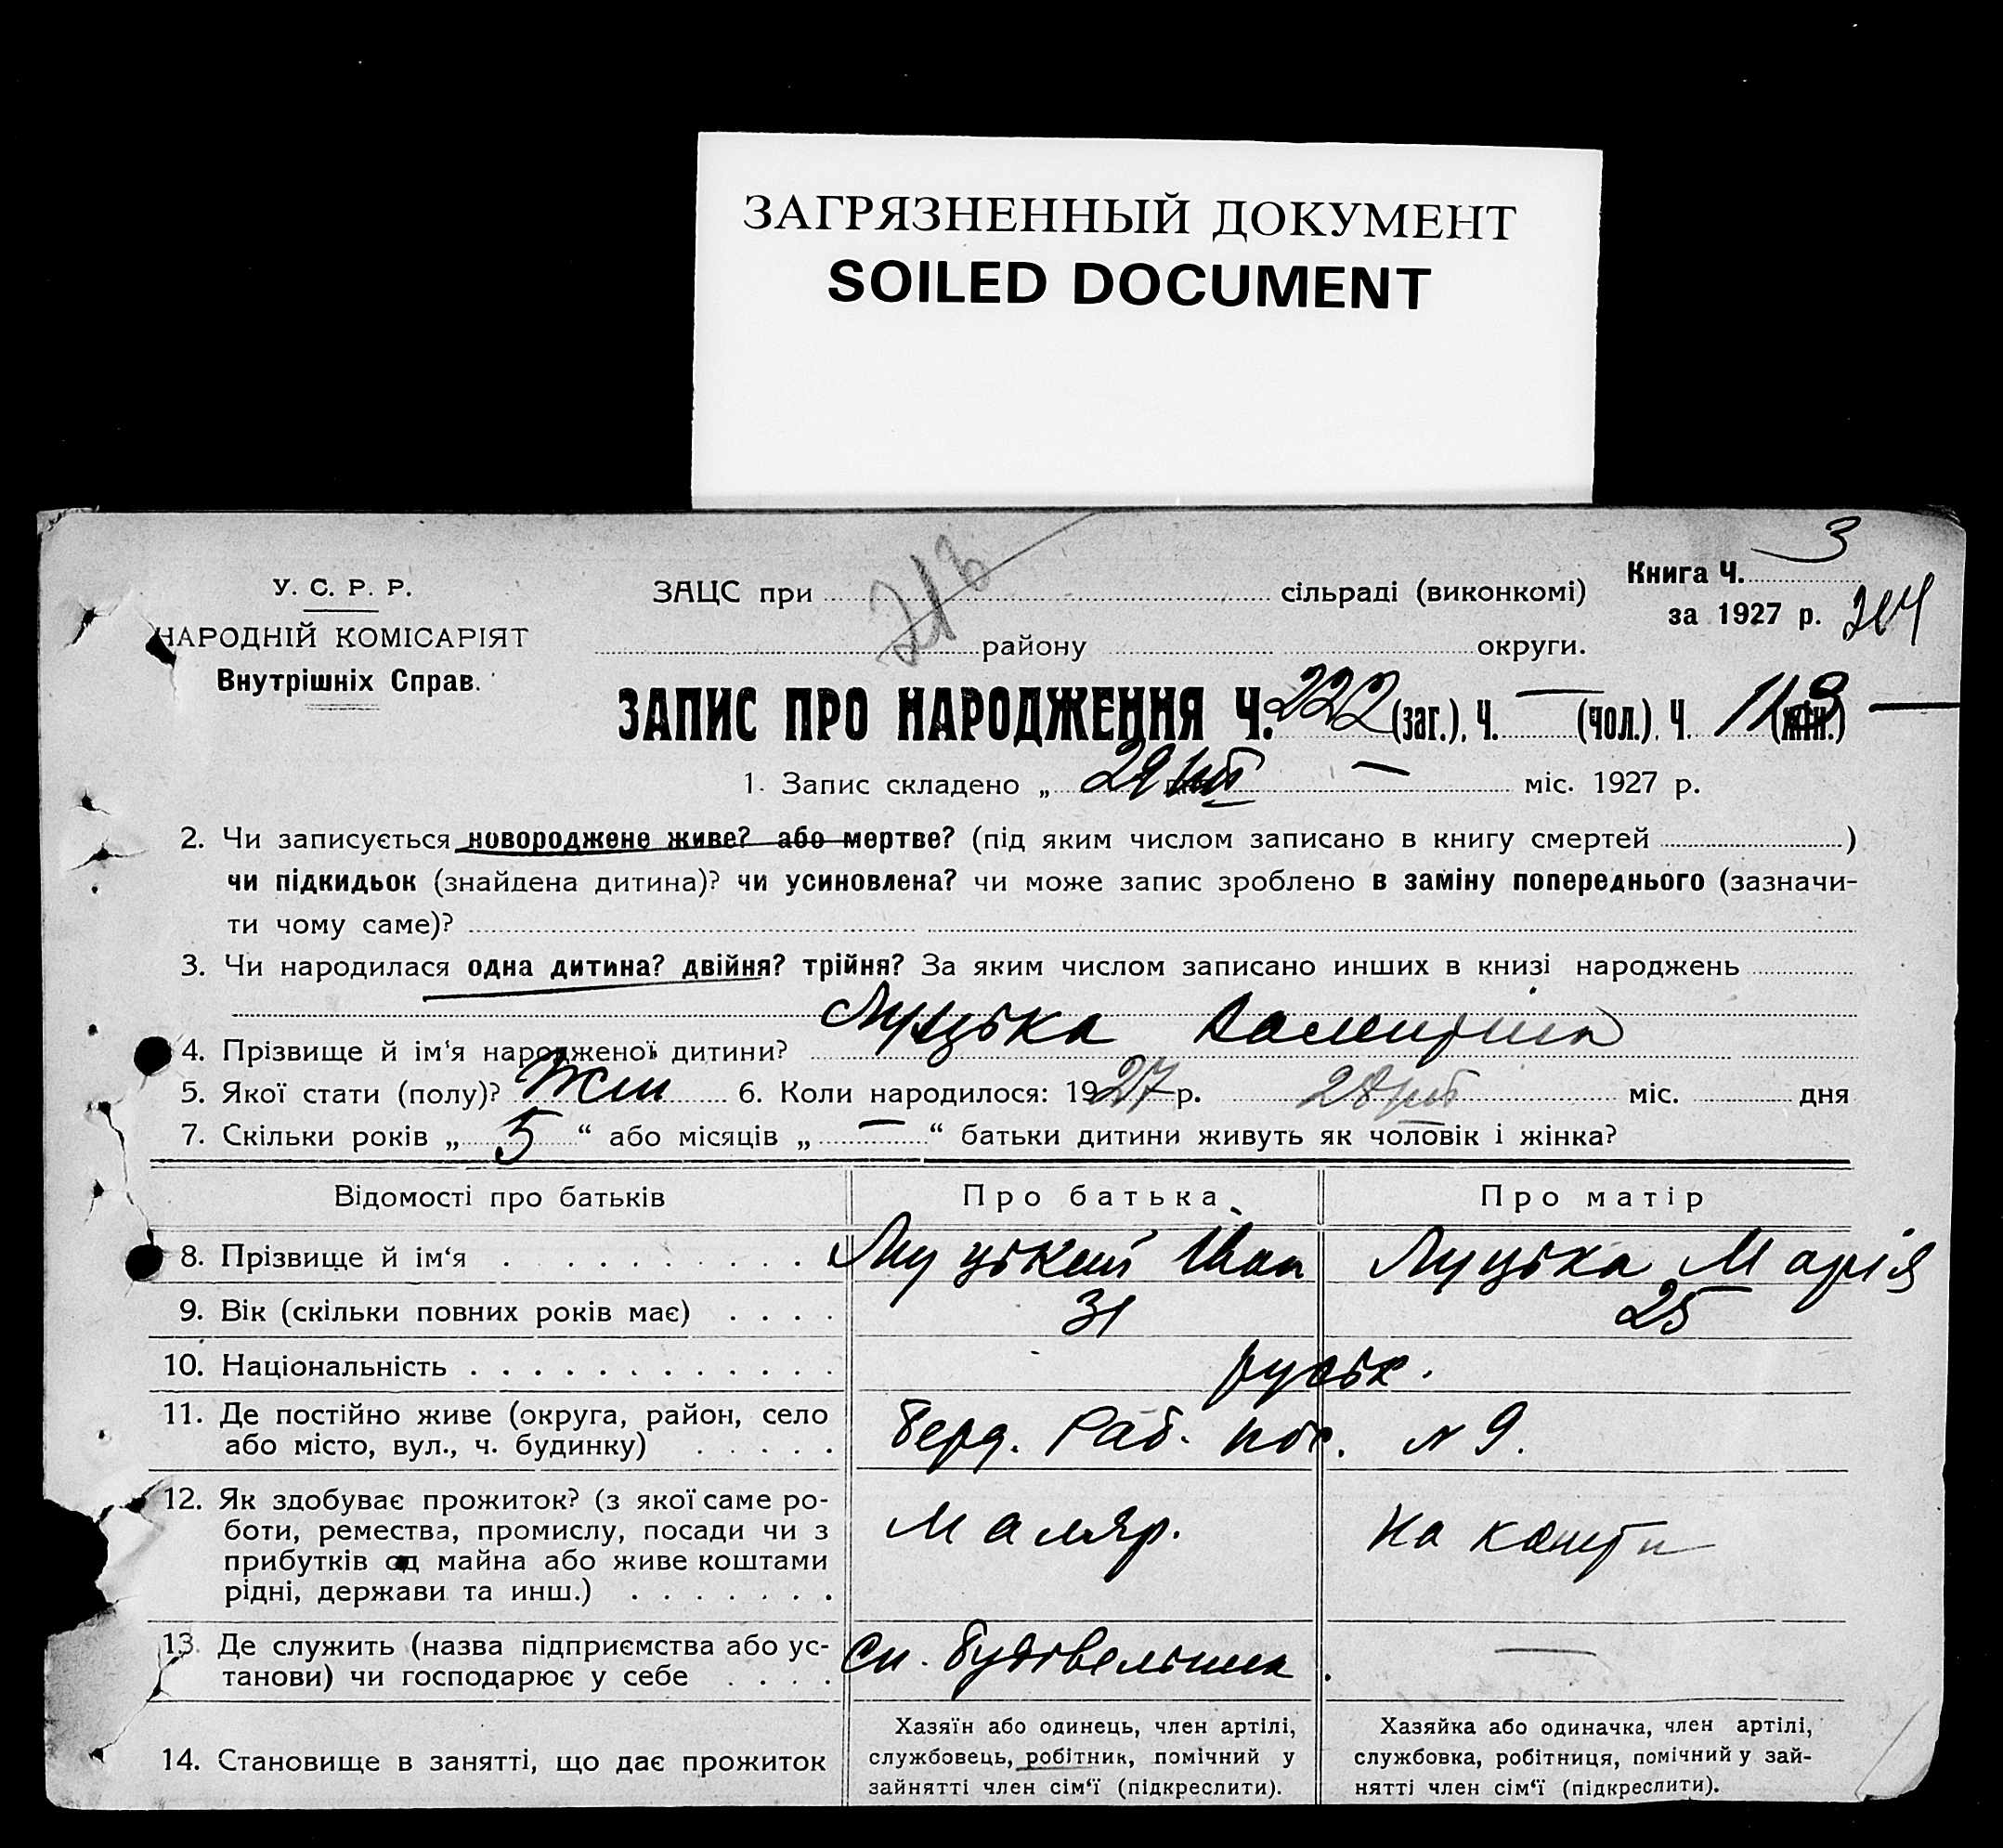 ЗАГРЯЗНЕННЫЙ ДОКУМЕНТ
SOILED DOCUMENT
3
У. С. Р. Р.
НАРОДНІЙ КОМІСАРІЯТ
Внутрішніх Справ.
ЗАЦС при сільраді (виконкомі)
Книга Ч.
району округи.
за 1927 р. 204
ЗАПИС ПРО НАРОДЖЕННЯ Ч. 222 (заг.), Ч. — (чол.). Ч. (жін.)
1. Запис складено „ міс. 1927 р.
2. Чи записується новороджене живе? або мертве? (під яким числом записано в книгу смертей )
чи підкидьок (знайдена дитина)? чи усиновлена? чи може запис зроблено в заміну попереднього (зазначи-
ти чому саме)?
3. Чи народилася одна дитина? двійня? трійня? За яким числом записано инших в книзі народжень
4. Прізвище й ім‘я народженої дитини? Луцька
5. Якої стати (полу)? Жін 6. Коли народилося: 1927 р. міс. дня
7. Скільки років „ 5 “ або місяців „ — “ батьки дитини живуть як чоловік і жінка?
Відомості про батьків Про батька Про матір
8. Прізвище й ім‘я . . . . . . . . . Луцький Іван Луцька Марія
9. Вік (скільки повних років має) . . . . 31 25
10. Національність . . . . . . . . . . . . . руськ.
11. Де постійно живе (округа, район, село
або місто, вул., ч. будинку) . . . . . Берд. Раб. пос. № 9.
12. Як здобуває прожиток? (з якої саме ро-
боти, ремества, промислу, посади чи з
прибутків од майна або живе коштами
рідні, держави та инш.) . . . . . . .
Маляр. На кошти
13. Де служить (назва підприємства або ус-
танови) чи господарює у себе . . . .
Сп. Будівельник. —
14. Становище в занятті, що дає прожиток
Хазяїн або одинець, член артілі,
службовець, робітник, помічний у
зайнятті член сім‘ї (підкреслити).
Хазяйка або одиначка, член артілі,
службовка, робітниця, помічний у зай-
нятті член сім‘ї (підкреслити).